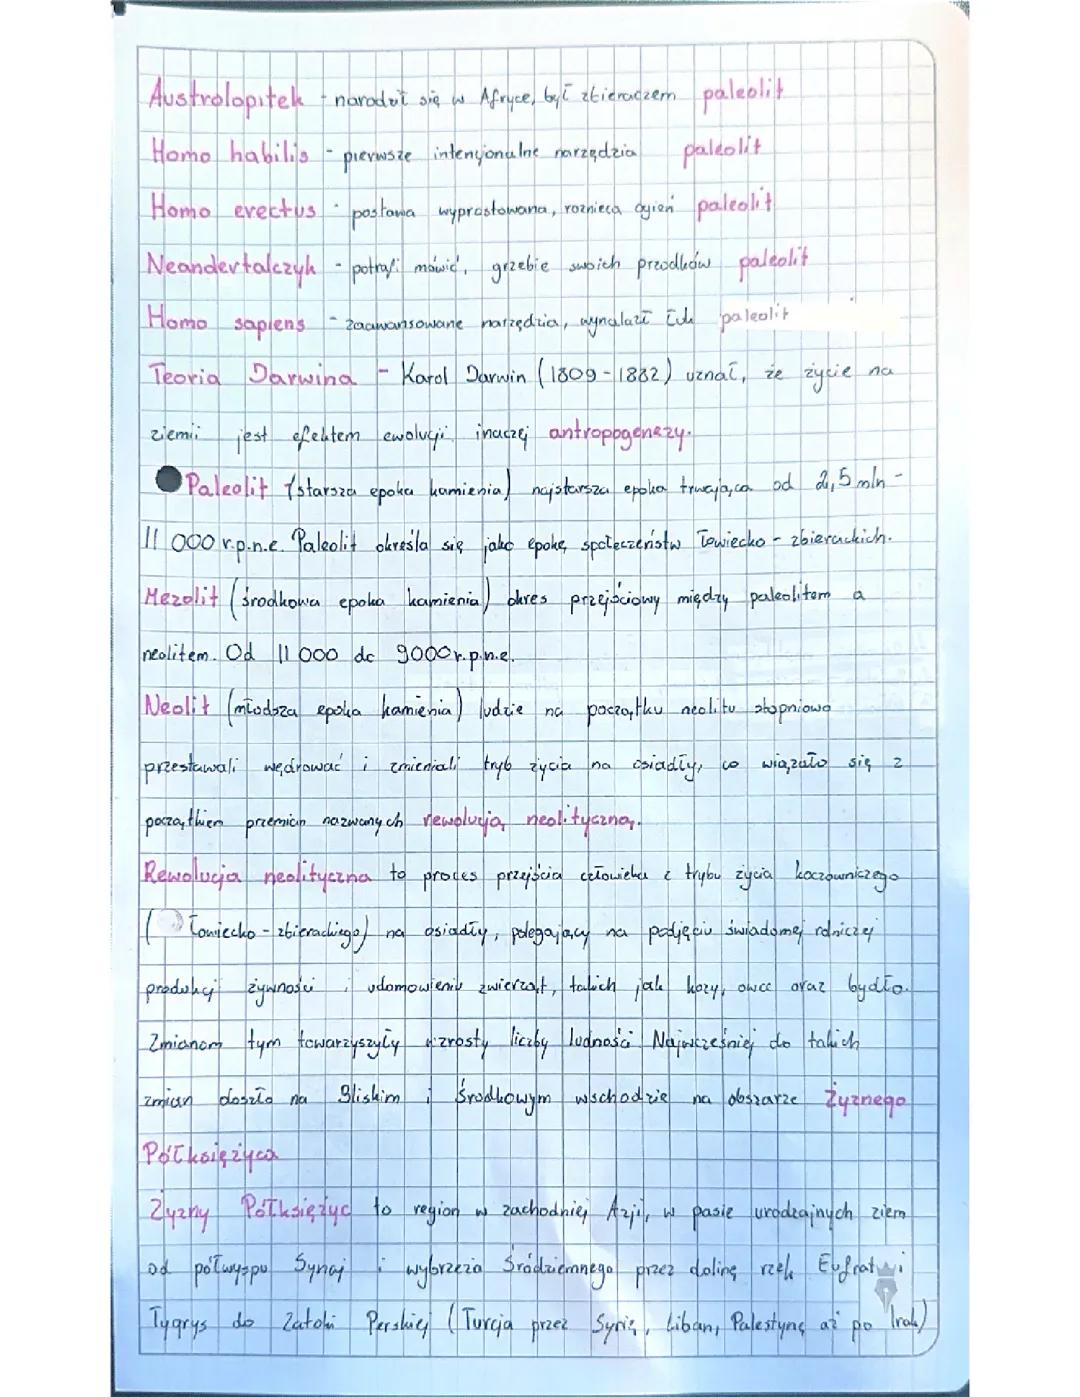 Austrolopitek - narodził się w Afryce, był zbieraczem paleolit
Homo habilis - pierwsze intencjonalne narzędzia paleolit
Homo erectus - postawa wyprostowana, roznieca ogień paleolit
Neandertalczyk - potrafi mówić, grzebie swoich przodków paleolit
Homo sapiens - zaawansowane narzędzia, wynalazł łuk paleolit
Teoria Darwina - Karol Darwin (1809-1882) uznał, że życie na
ziemii jest efektem ewolucji inaczej antropogenezy.
Paleolit (starsza epoka kamienia) najstarsza epoka trwająca od 2,5 mln -
11 000 r.p.n.e. Paleolit określa się jako epokę społeczeństw łowiecko - zbierackich.
Mezolit (środkowa epoka kamienia) okres przejściowy między paleolitem a
neolitem. Od 11 000 do 9000 r.p.n.e.
Neolit (młodsza epoka kamienia) ludzie na początku neolitu stopniowo
przestawali wędrować i zmieniali tryb życia na osiadły, co wiązało się z
początkiem przemian nazwanych rewolucją neolityczną.
Rewolucja neolityczna to proces przejścia człowieka z trybu życia koczowniczego
( łowiecko - zbierackiego) na osiadły, polegający na podjęciu świadomej rolniczej
produkcji żywności i udomowieniu zwierząt, takich jak kozy, owce oraz bydło.
Zmianom tym towarzyszyły wzrosty liczby ludności Najwcześniej do takich
zmian doszło na Bliskim i Środkowym wschodzie na obszarze Żyznego
Półksiężyca
Żyzny Półksiężyc to region w zachodniej Azji, w pasie urodzajnych ziem
od półwyspu Synaj i wybrzeża Śródziemnego przez dolinę rzek Eufrat i
Tygrys do Zatoki Perskiej (Turcja przez Syrię, Liban, Palestynę aż po Irak)